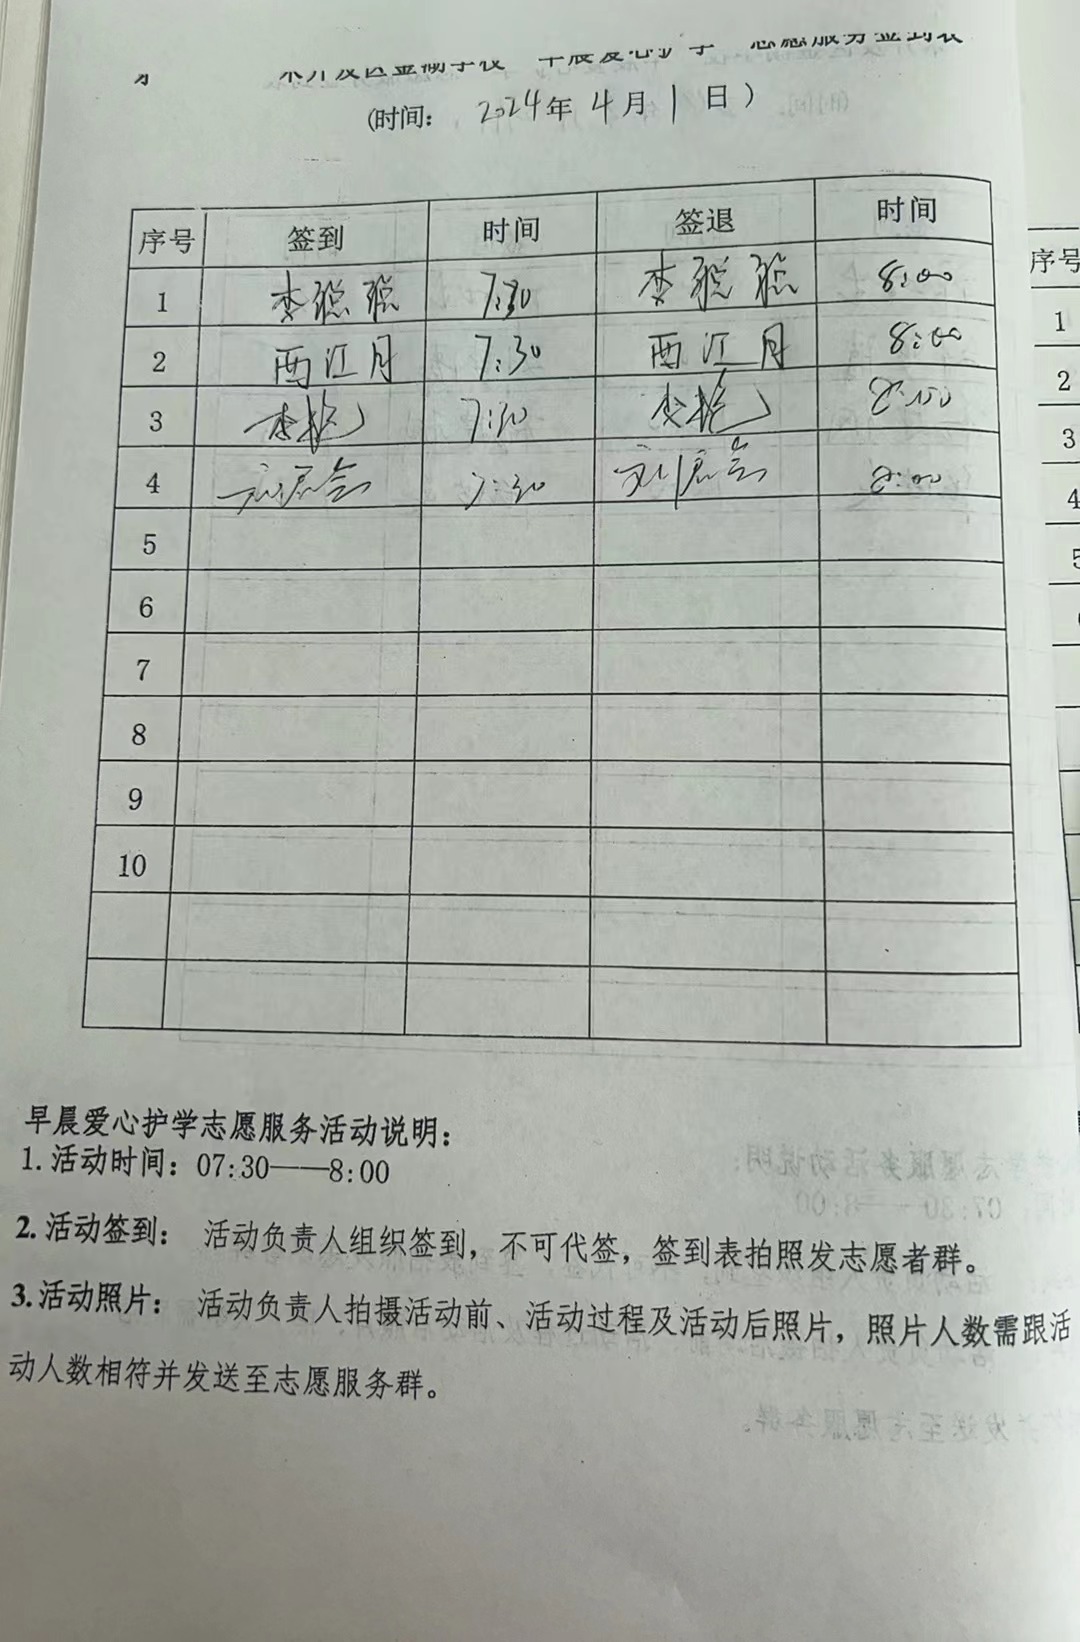 术开发区金湖学校 早晨爱心护学 志愿服务签到表
(时间： 2024年 4月 1 日 )
序号 签到 时间 签退 时间
1 李聪聪 7:30 李聪聪 8:00
2 西江月 7:30 西江月 8:00
3 李艳 7:30 李艳 8:00
4 7:30 8:00
5
6
7
8
9
10
早晨爱心护学志愿服务活动说明：
1. 活动时间：07:30——8:00
2. 活动签到： 活动负责人组织签到，不可代签，签到表拍照发志愿者群。
3. 活动照片： 活动负责人拍摄活动前、活动过程及活动后照片，照片人数需跟活
动人数相符并发送至志愿服务群。
序号
1
2
3
4
5